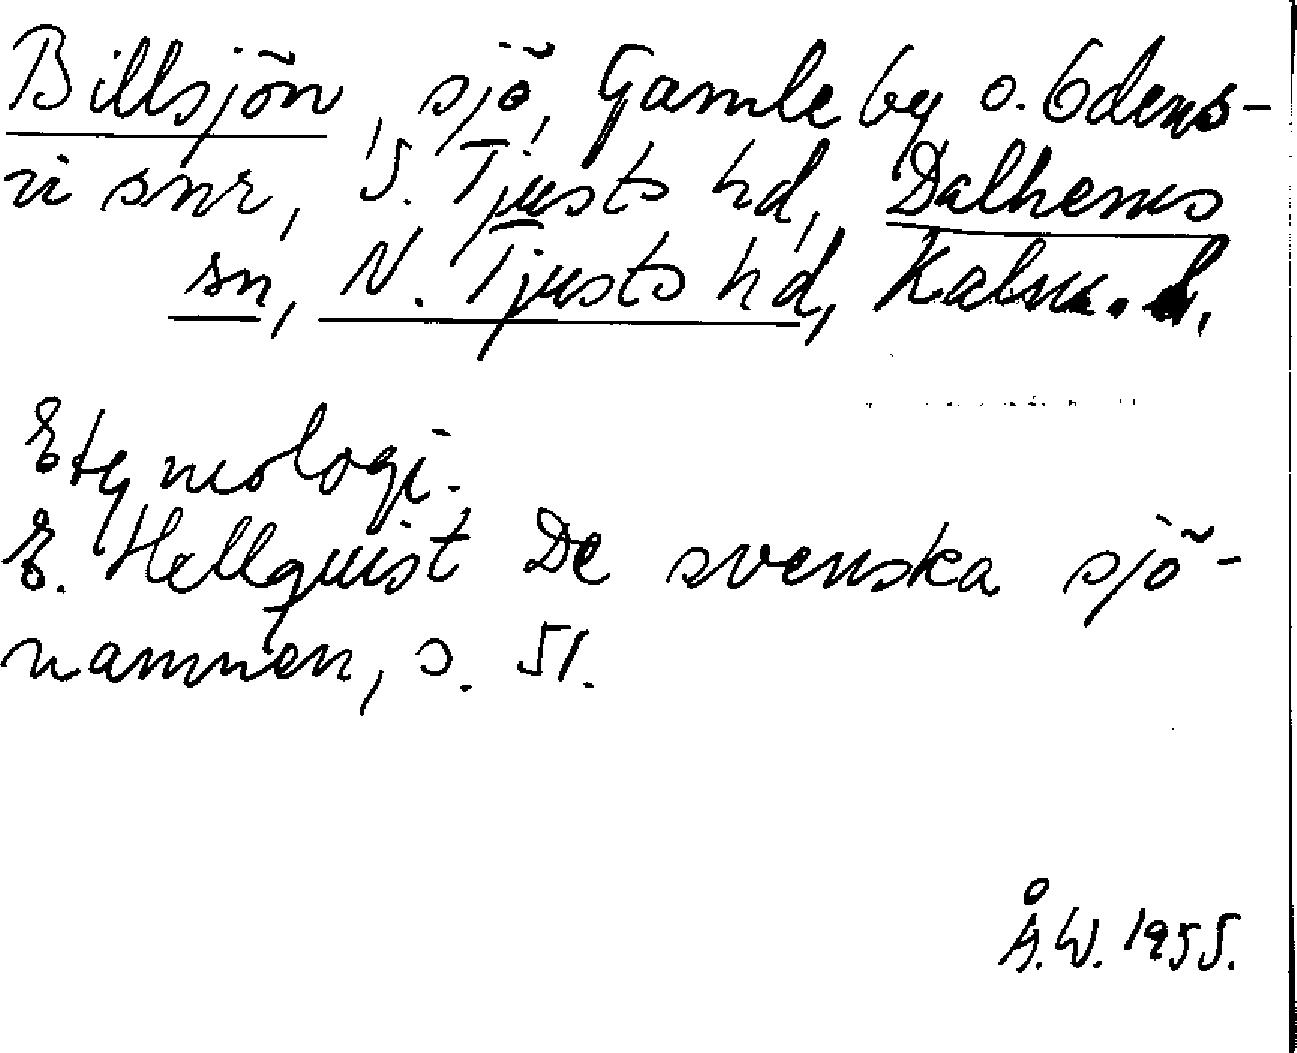 Billsjön, sjö, Gamleby o. Odens-
vi snr, S. Tjusts hd, Dalhems
sn, N. Tjusts hd, Kalm. l.
Etymologi.
E. Hellquist De svenska sjö-
namnen, s. 51.
Å.W. 1955.